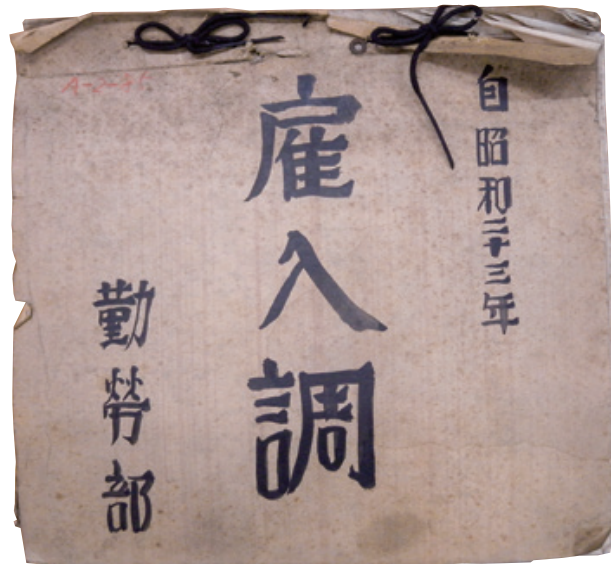 自昭和二十三年
雇入調
勤勞部